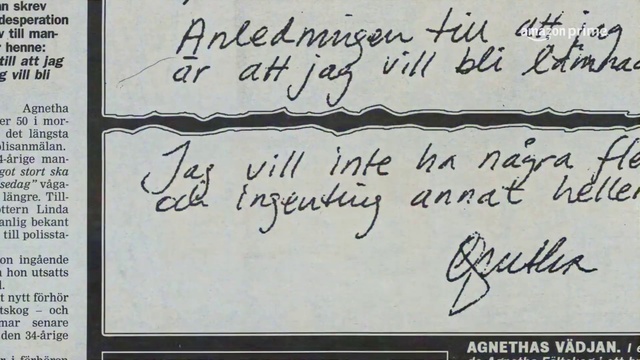 n skrev
desperation
v till man-
r henne:
till att jag
g vill bli
Agnetha
er 50 i mor-
det längsta
olisanmälan.
4-årige man-
got stort ska
sedag" våga-
längre. Till-
ottern Linda
anlig bekant
till polissta-
on ingående
n hon utsatts
t nytt förhör
tskog – och
mar senare
den 34-årige
r i förhören
Anledningen till att jag
är att jag vill bli lämnad
Jag vill inte ha några fle
och ingenting annat heller
Agnetha
AGNETHAS VÄDJAN.
amazon prime